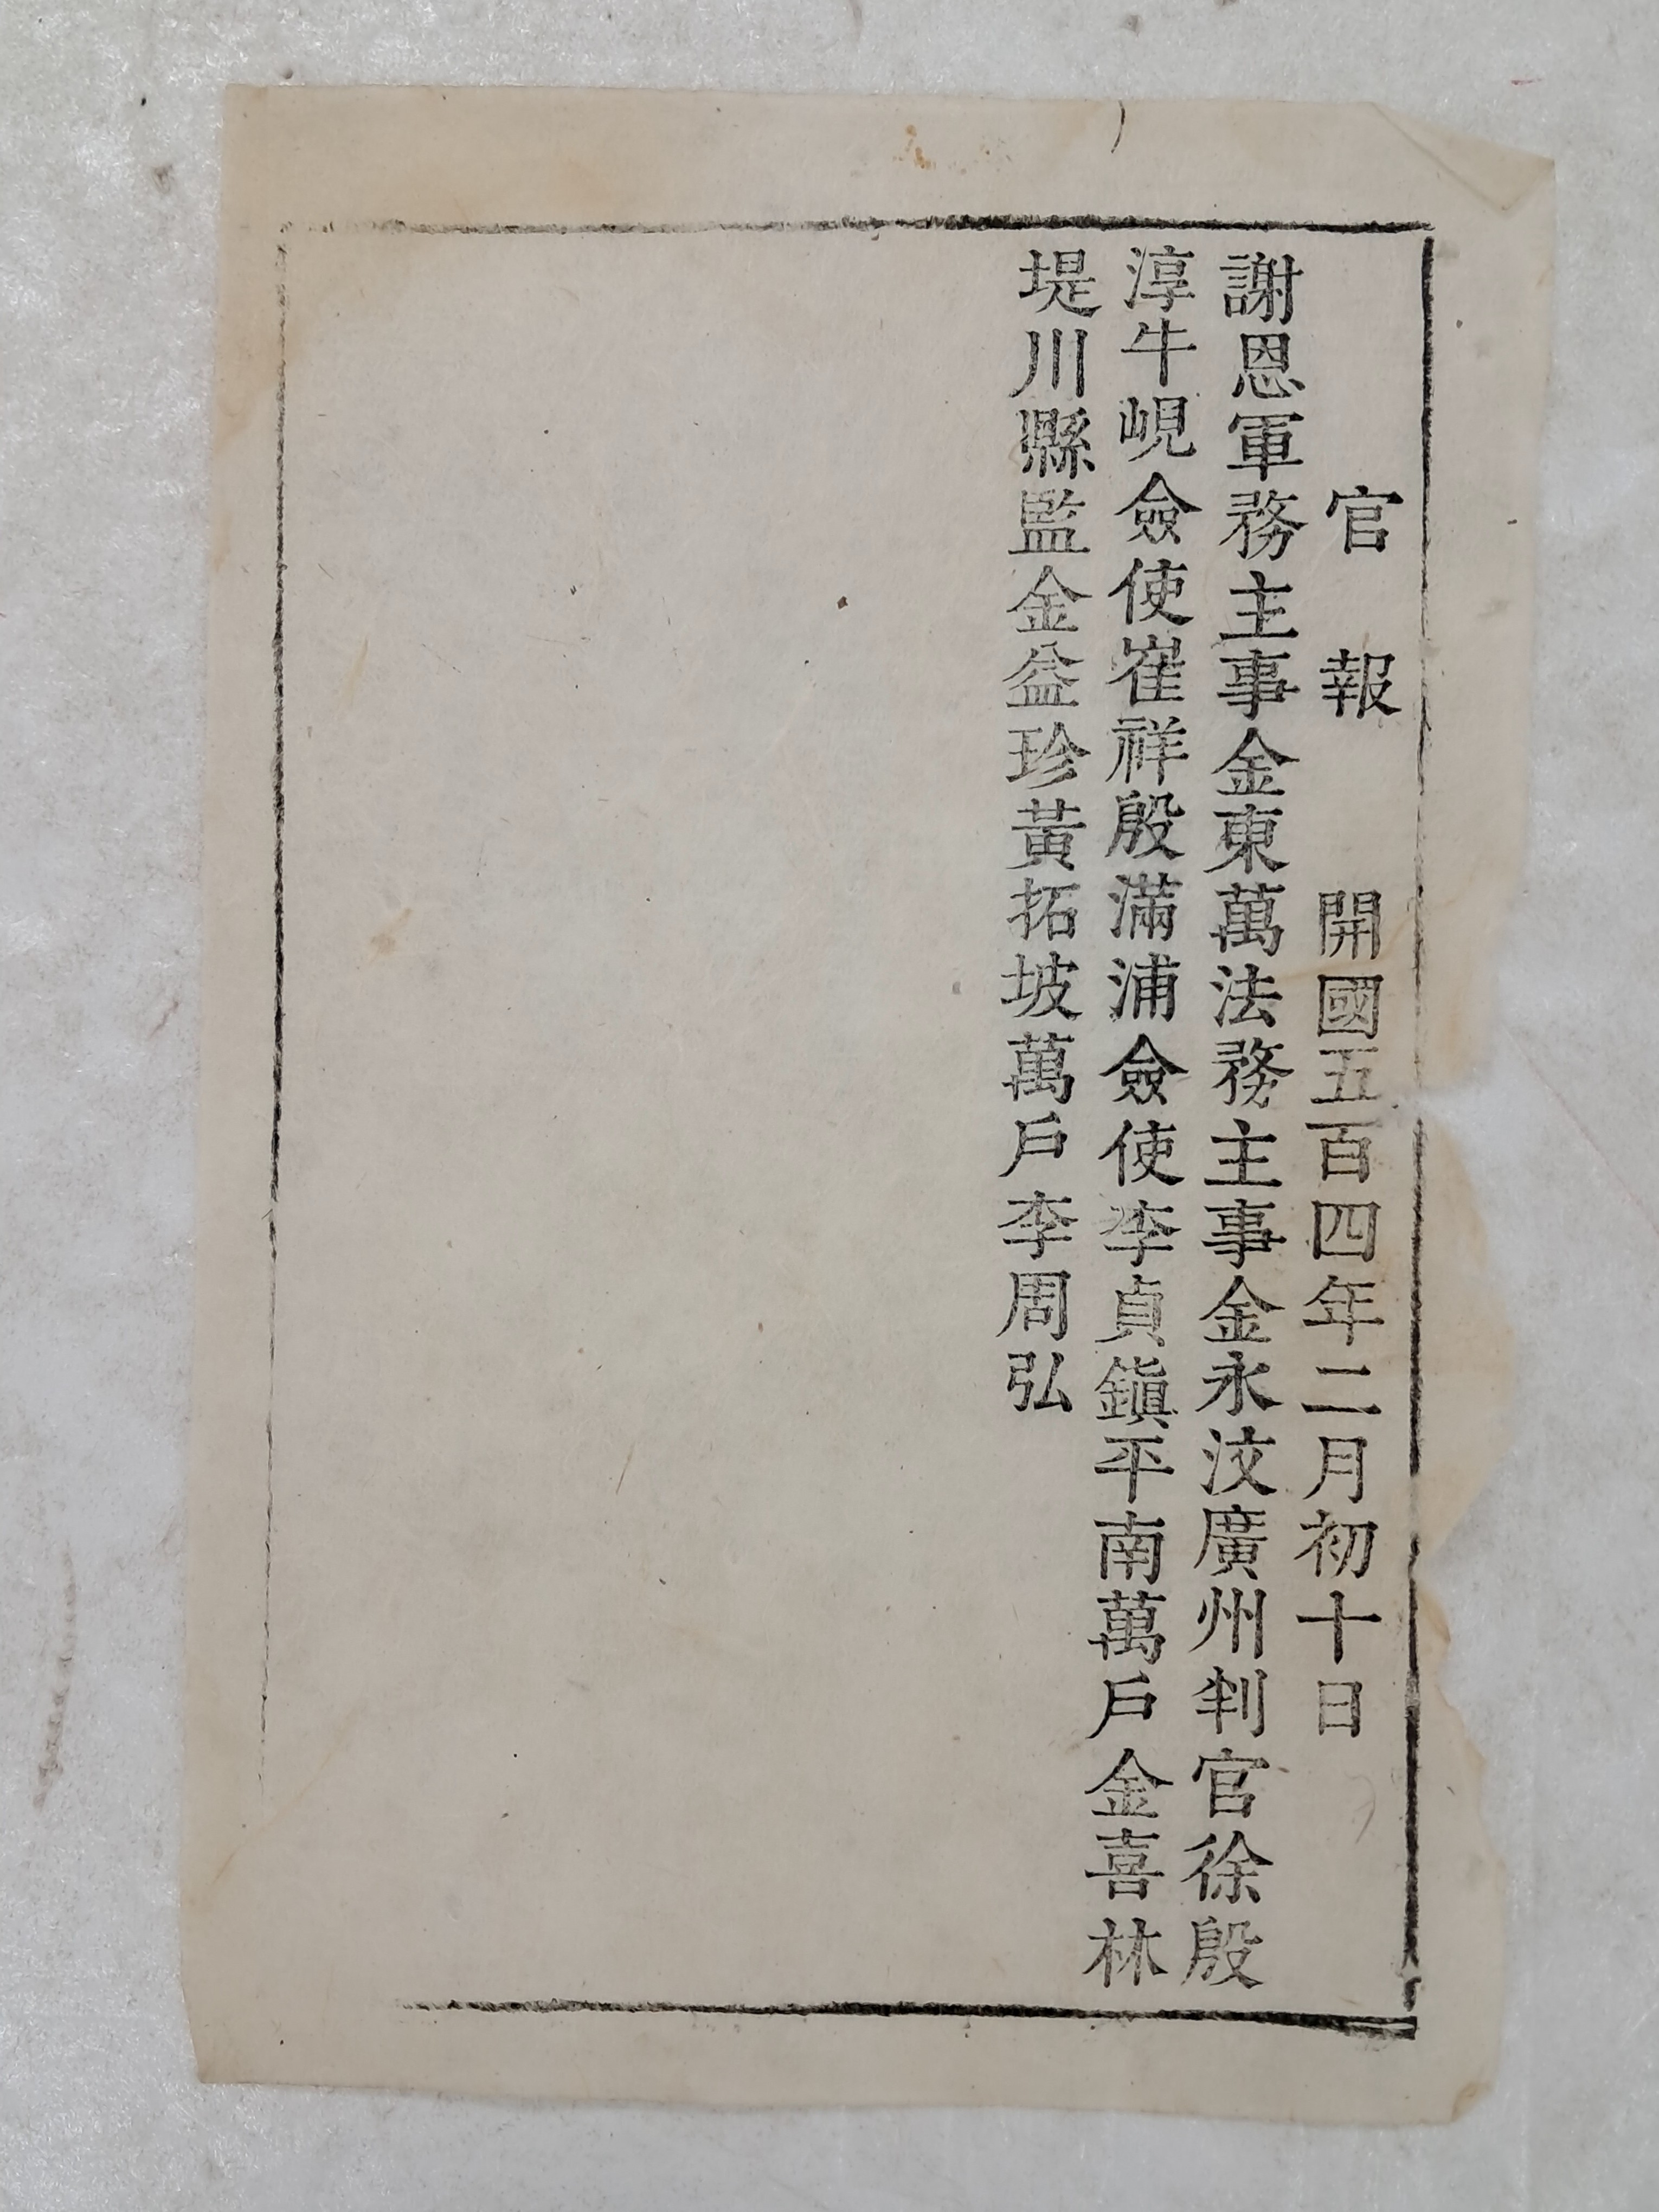 官報 開國五百四年二月初十日
謝恩軍務主事金東萬法務主事金永汶廣州判官徐殷
淳牛峴僉使崔祥殷滿浦僉使李貞鎭平南萬戶金喜林
堤川縣監金益珍黃拓坡萬戶李周弘